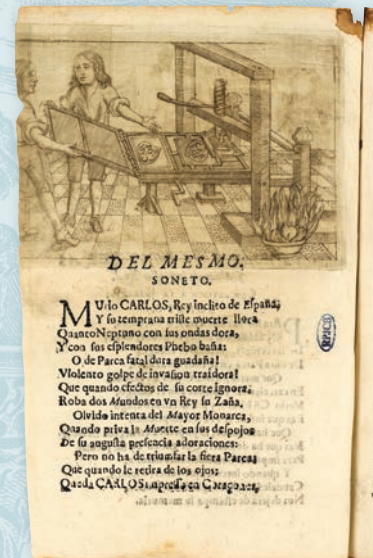 DEL MESMO.
SONETO.
MUrio CARLOS, Rey inclito de España,
Y su temprana triste muerte llora
Quanto Neptuno con sus ondas dora,
Y con sus esplendores Phebo baña:
O de Parca fatal dura guadaña!
Violento golpe de invasion traidora!
Que quando efectos de su corte ignora,
Roba dos Mundos en vn Rey su Zaña.
Olvido intenta del Mayor Monarca,
Quando priva la Muerte en sus despojos
De su augusta presencia adoraciones:
Pero no ha de triumfar la fiera Parca;
Que quando le retira de los ojos;
Queda CARLOS impresso en Coraçones,